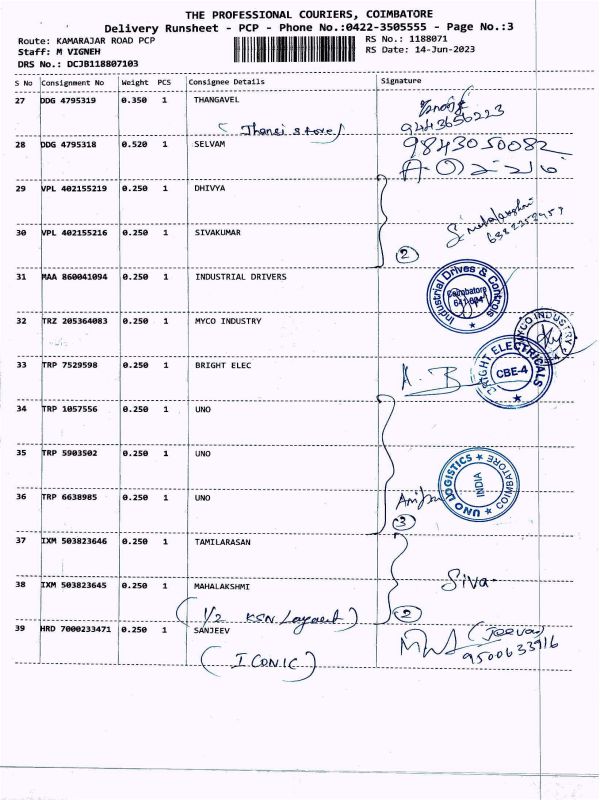 THE PROFESSIONAL COURIERS, COIMBATORE
Delivery Runsheet - PCP - Phone No.:0422-3505555 - Page No.:3
Route: KAMARAJAR ROAD PCP RS No.: 1188071
Staff: M VIGNEH RS Date: 14-Jun-2023
DRS No.: DCJB118807103
S No Consignment No Weight PCS Consignee Details Signature
27 DDG 4795319 0.350 1 THANGAVEL
9443656223
28 DDG 4795318 0.520 1 SELVAM 9843050082
29 VPL 402155219 0.250 1 DHIVYA
30 VPL 402155216 0.250 1 SIVAKUMAR
2
31 MAA 860041094 0.250 1 INDUSTRIAL DRIVERS
Industrial Drives & Controls
Coimbatore
32 TRZ 205364083 0.250 1 MYCO INDUSTRY
MYCO INDUSTRY
33 TRP 7529598 0.250 1 BRIGHT ELEC A. B
BRIGHT ELECTRICALS
CBE-4
34 TRP 1057556 0.250 1 UNO
35 TRP 5903502 0.250 1 UNO
UNO LOGISTICS COIMBATORE
INDIA
36 TRP 6638985 0.250 1 UNO
3
37 IXM 503823646 0.250 1 TAMILARASAN
38 IXM 503823645 0.250 1 MAHALAKSHMI Siva
(1/2 KSN Layout) 2
39 HRD 7000233471 0.250 1 SANJEEV (Jeeva)
(ICONIC) 9500633916